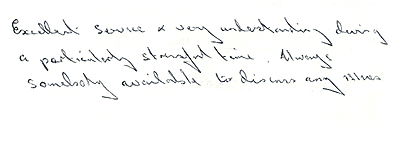 Excellent service & very understanding during
a particularly stressful time. Always
somebody available to discuss any issues